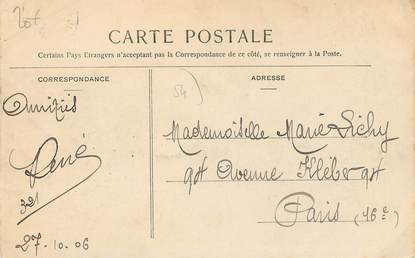 CARTE POSTALE
Certains Pays Etrangers n'acceptant pas la Correspondance de ce côté, se renseigner à la Poste.
CORRESPONDANCE
Amitiés
René
321
27-10-06
ADRESSE
54
Mademoiselle Marie Lichy
94 Avenue Kléber 94
Paris (16e)